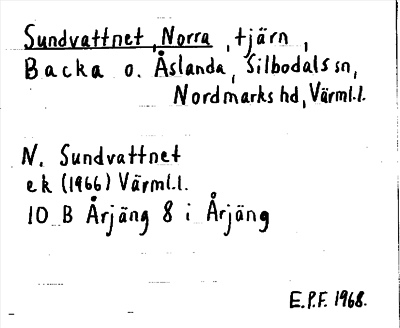 Sundvattnet, Norra, tjärn,
Backa o. Åslanda, Silbodals sn,
Nordmarks hd, Värml.l.
N. Sundvattnet
ek (1966) Värml.l.
10 B Årjäng 8 i Årjäng
E.P.F. 1968.